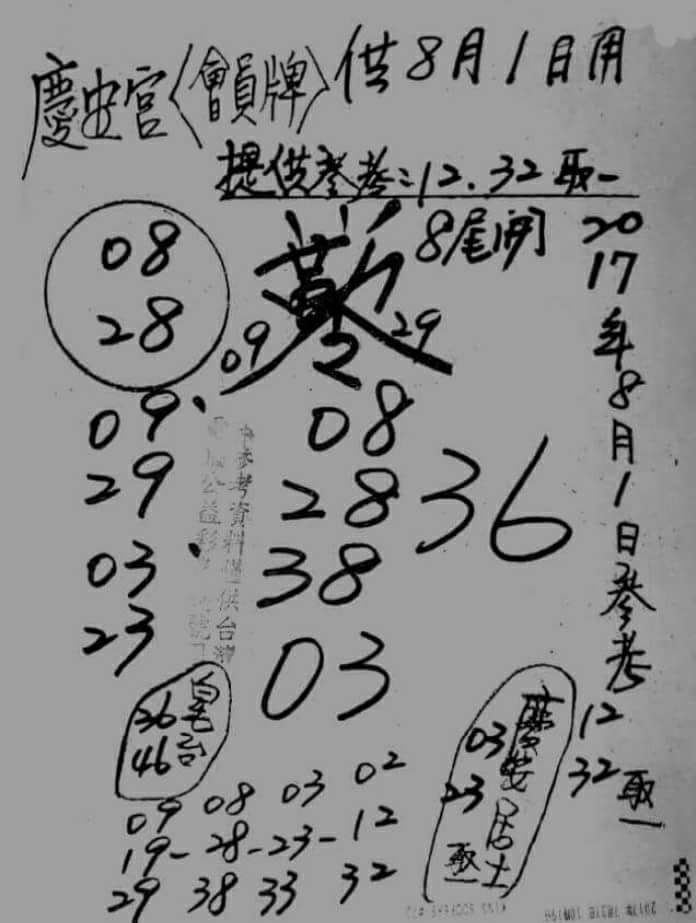 慶安宮〈會員牌〉供8月1日用
提供參考:12.32取一
8尾開
08
28
09 29
09、 08
29 28
03、 38
23 03
36
2017年8月1日參考
12
32 取一
參考資料僅供台灣
公益彩
36
46
慶安居士
03
23
取一
09 08 03 02
19-28-23-12
29 38 33 32